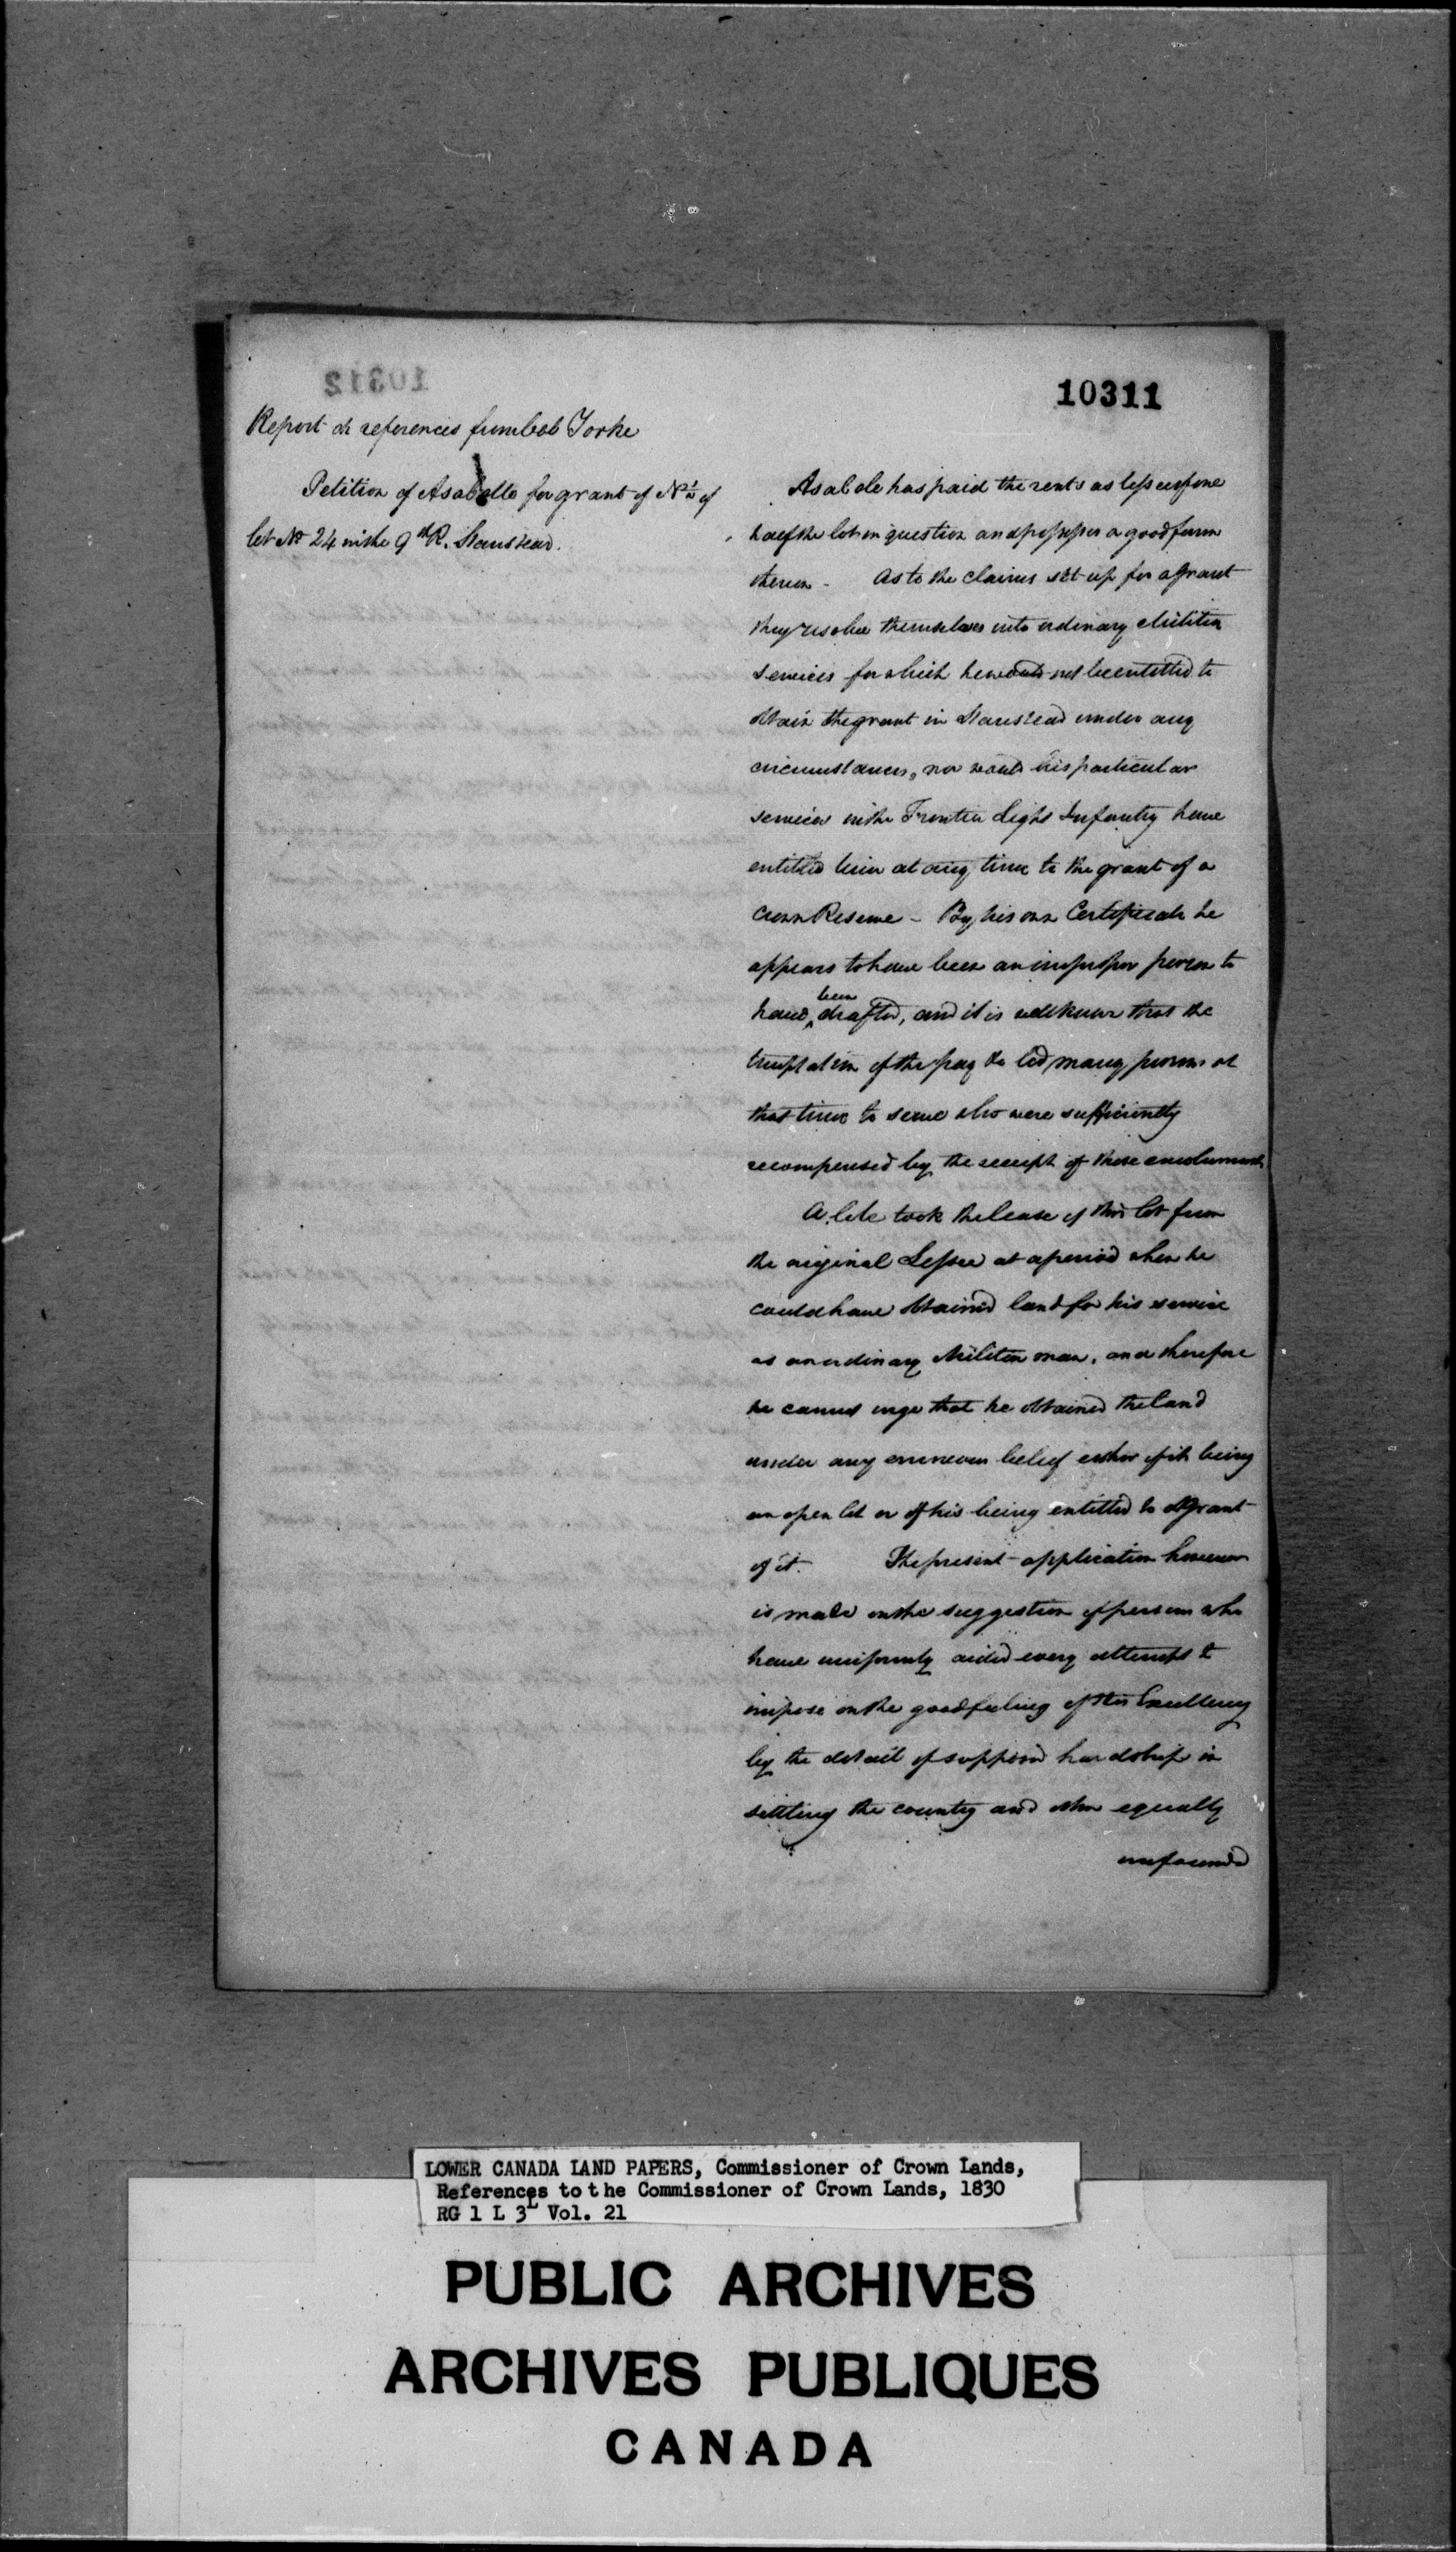 10312
10311
Report on references from Col Yorke
Petition of Asa Cole for grant of N ½ of
lot No 24 in the 9th R. Stanstead.
Asa Cole has paid the rents as lessee of one
half the lot in question and possesses a good farm
thereon - As to the claims set up for a Grant
they resolve themselves into ordinary Militia
Services for which he would not be entitled to
obtain the grant in Stanstead under any
circumstances, nor would his particular
service in the Frontier Light Infantry have
entitled him at any time to the grant of a
Crown Reserve - By his own Certificate he
appears to have been an improper person to
have been drafted, and it is well known that the
temptation of the pay &c led many persons at
that time to serve who were sufficiently
recompensed by the receipt of those emoluments
A. Cole took the lease of this lot from
the original Lessee at a period when he
could have obtained land for his service
as an ordinary Militia man, and therefore
he cannot urge that he obtained the land
under any erroneous belief either of its being
an open lot or of his being entitled to a Grant
of it. The present application however
is made on the suggestion of persons who
have uniformly aided every attempt to
impose on the good feeling of His Excellency
by the detail of supposed hardship in
settling the country and other equally
unfounded
LOWER CANADA LAND PAPERS, Commissioner of Crown Lands,
References to the Commissioner of Crown Lands, 1830
RG 1 L 3L Vol. 21
PUBLIC ARCHIVES
ARCHIVES PUBLIQUES
CANADA